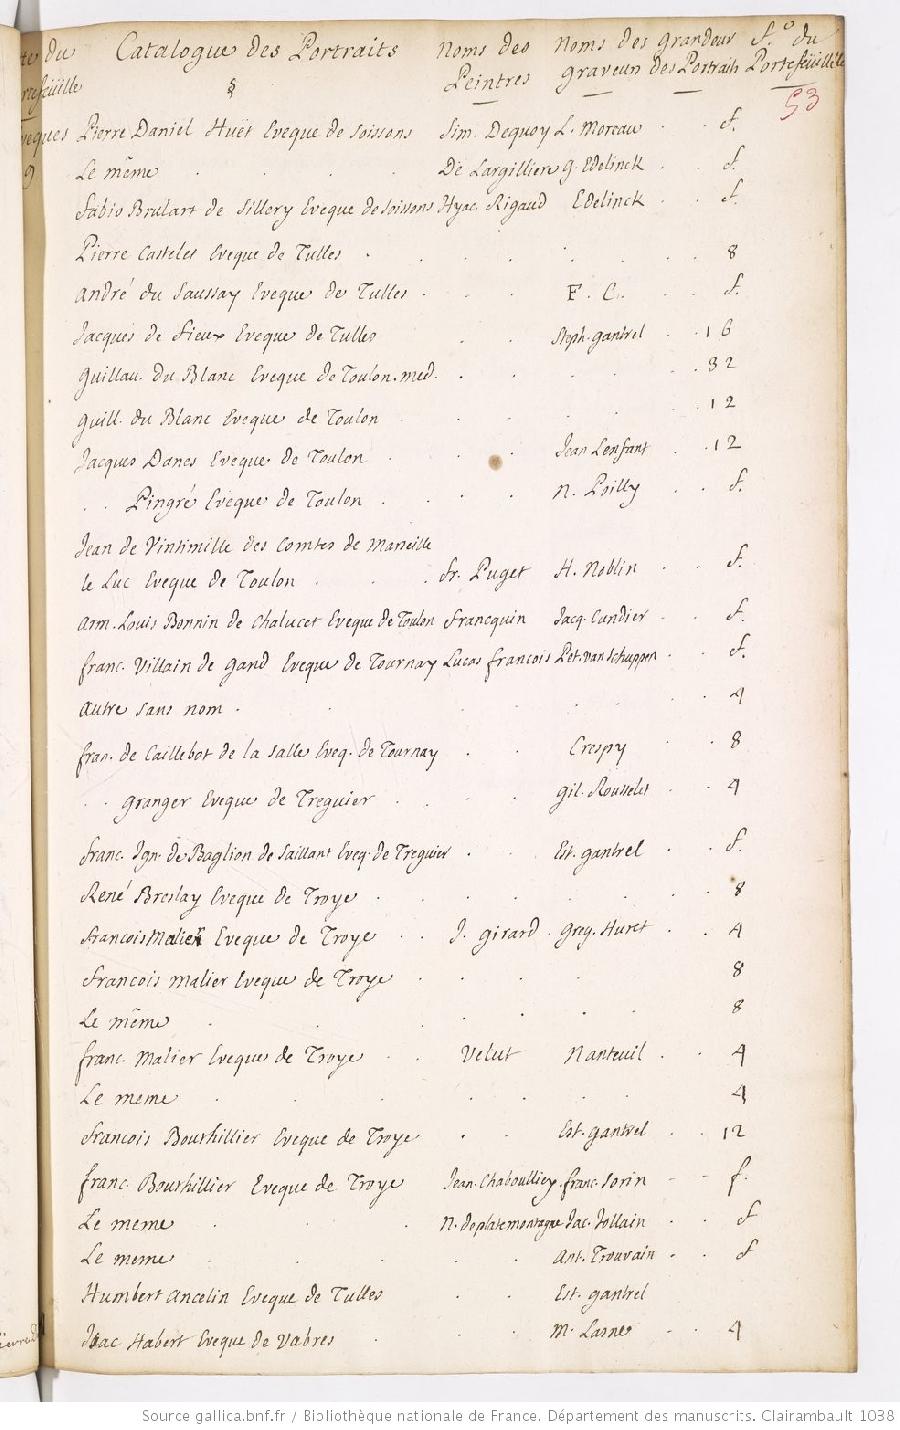 Catalogue des Portraits
noms des Peintres
noms des graveurs
grandeur des Portraits
f.º du Portefeüille
§
53
Pierre Daniel Huët Eveque de Soissons Sim. Dequoy L. Moreau f.
Le même De Largilliere g. Edelinck f.
fabio Brulart de Sillery Eveque de Soissons Hyac. Rigaud Edelinck f.
Pierre Casteles Eveque de Tulles 8
André du Saussay Eveque de Tulles F. C. f.
Jacques de fieux Eveque de Tulles Steph. gantrel 16
guillau. du Blanc Eveque de Toulon. med. 32
guill. du Blanc Eveque de Toulon 12
Jacques Danes Eveque de Toulon Jean Lenfant 12
Pingré Eveque de Toulon n. Poilly f.
Jean de Vintimille des Comtes de Marseille
le Luc Eveque de Toulon fr. Puget H. Noblin f.
arm. Louis Bonnin de Chalucet Eveque de Toulon francquin Jacq. Cundier f.
franc. Villain de gand Eveque de Tournay Lucas francois Pet. van Schuppen f.
autre sans nom 4
fran. de Caillebot de la Salle Eveq. de Tournay Crespy 8
granger Eveque de Treguier gil. Rousselet 4
franc. Ign. de Baglion de Saillant Eveq. de Treguier Est. gantrel f.
René Breslay Eveque de Troye 8
francois Malier Eveque de Troye J. girard greg. Huret 4
francois malier Eveque de Troye 8
Le même 8
franc. Malier Eveque de Troye Velut Nanteuil 4
Le meme 4
francois Bouthillier Eveque de Troye Est. gantrel 12
franc. Bouthillier Eveque de Troye Jean. Chaboulliez franc. Sorin f.
Le meme N. deplatemontagne Jac. Jollain f
Le meme Ant. Trouvain f
Humbert ancelin Eveque de Tulles Est. gantrel
Isac Habert Eveque de Vabres m. Lasnes 4
Source gallica.bnf.fr / Bibliothèque nationale de France. Département des manuscrits. Clairambault 1038